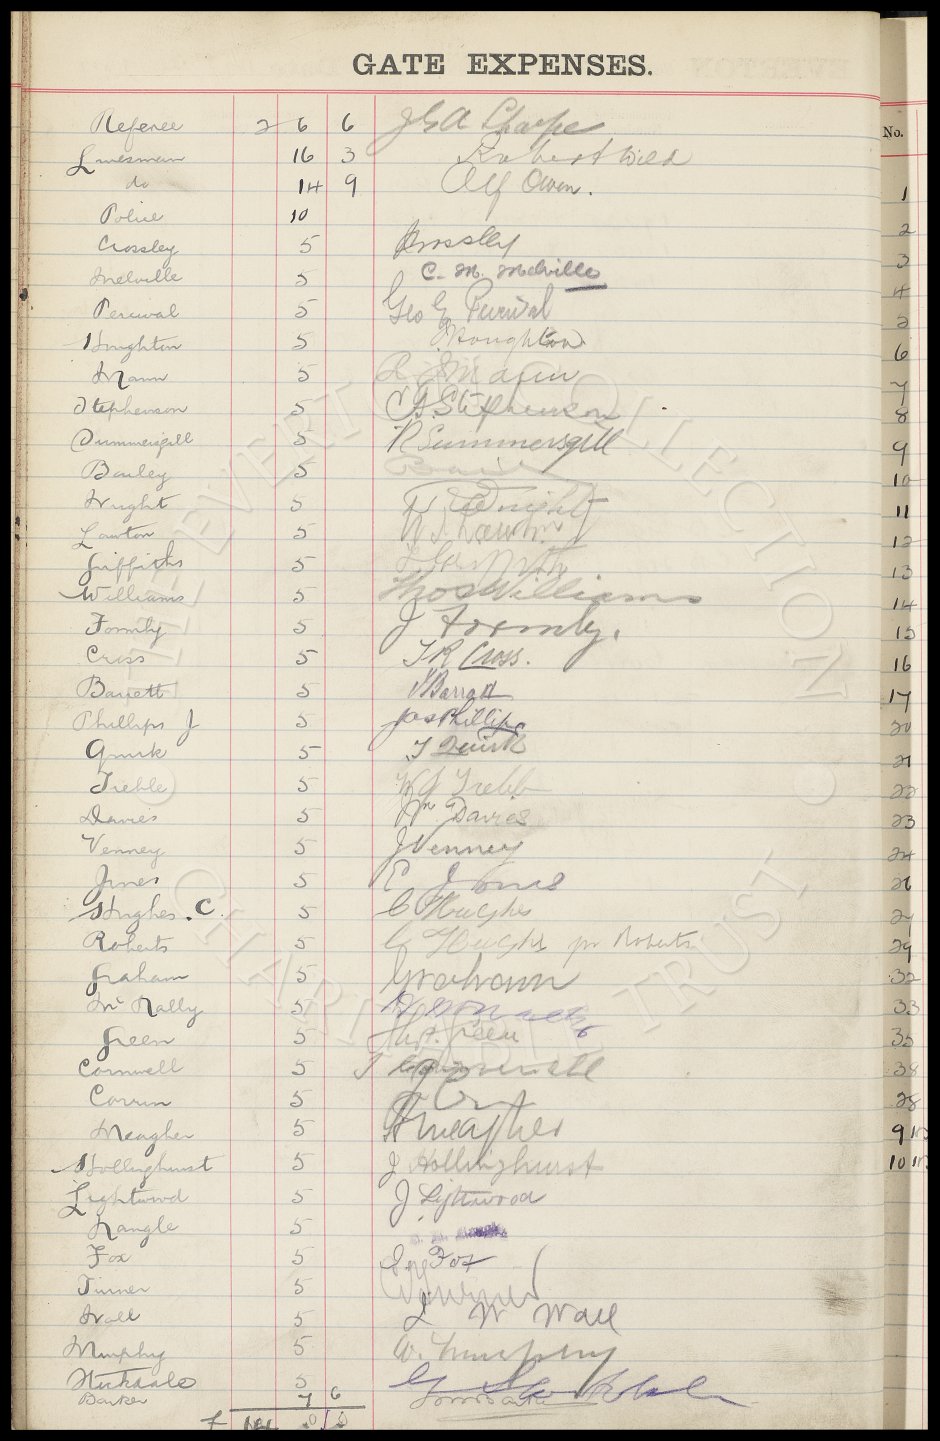 GATE EXPENSES.
No.
Referee 2 6 6 J G A Sharpe
Linesman 16 3 Robert Wild
do 14 9 Alf Owen. 1
Police 10 2
Crossley 5 Crossley 3
Melville 5 C. M. Melville 4
Percival 5 Geo E Percival 2
Houghton 5 Houghton 6
Mann 5 Mann 7
Stephenson 5 Stephenson 8
Summersgill 5 R Summersgill 9
Bailey 5 10
Wright 5 Wright 11
Lawton 5 Lawton 12
Griffiths 5 13
Williams 5 Thos Williams 14
Formby 5 J Formby. 15
Cross 5 T R Cross. 16
Barrett 5 Barratt 17
Phillips J 5 Jas Phillips 20
Quirk 5 T Quirk 21
Treble 5 22
Davies 5 Wm. Davies 23
Venney 5 J Venney 24
Jones 5 E Jones 26
Hughes. C. 5 C Hughes 27
Roberts 5 C Hughes pr Roberts 29
Graham 5 Graham 32
McNally 5 33
Green 5 Green 35
Cornwell 5 38
Curran 5 28
Meagher 5 Meagher 9
Hollinghurst 5 J Hollinghurst 10
Lightwood 5 J Lightwood
Nangle 5
Fox 5 Fox
Turner 5 Turner
Wall 5 L W Wall
Murphy 5 W. Murphy
5
Barker 7 6
£
EVERTON COLLECTION CHARITABLE TRUST